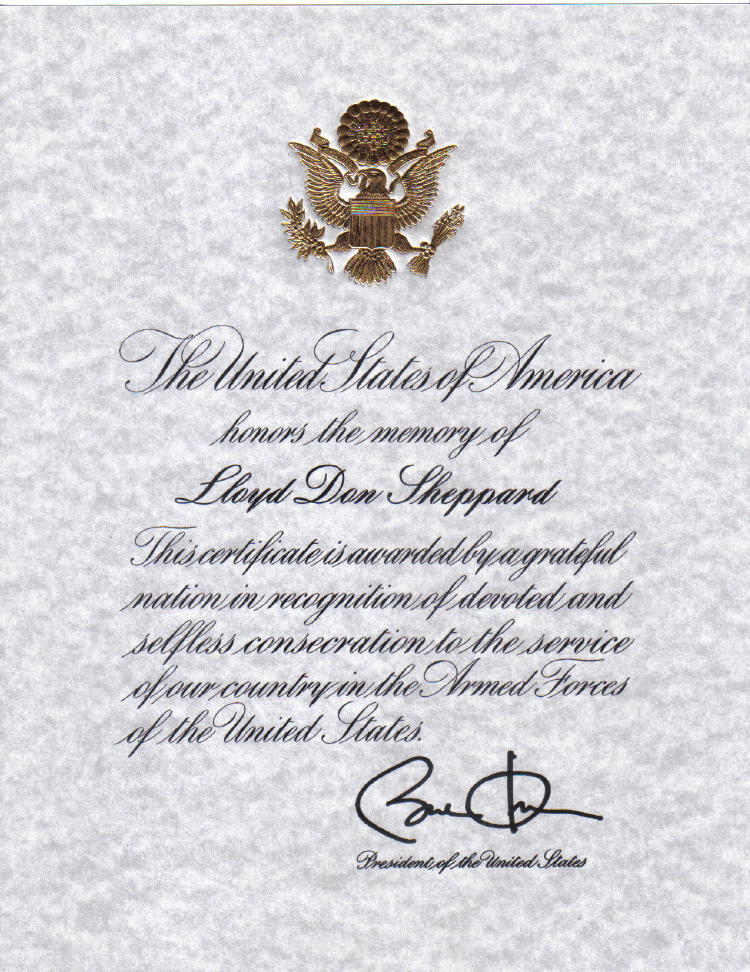 The United States of America
honors the memory of
Lloyd Don Sheppard
This certificate is awarded by a grateful
nation in recognition of devoted and
selfless consecration to the service
of our country in the Armed Forces
of the United States.
President of the United States